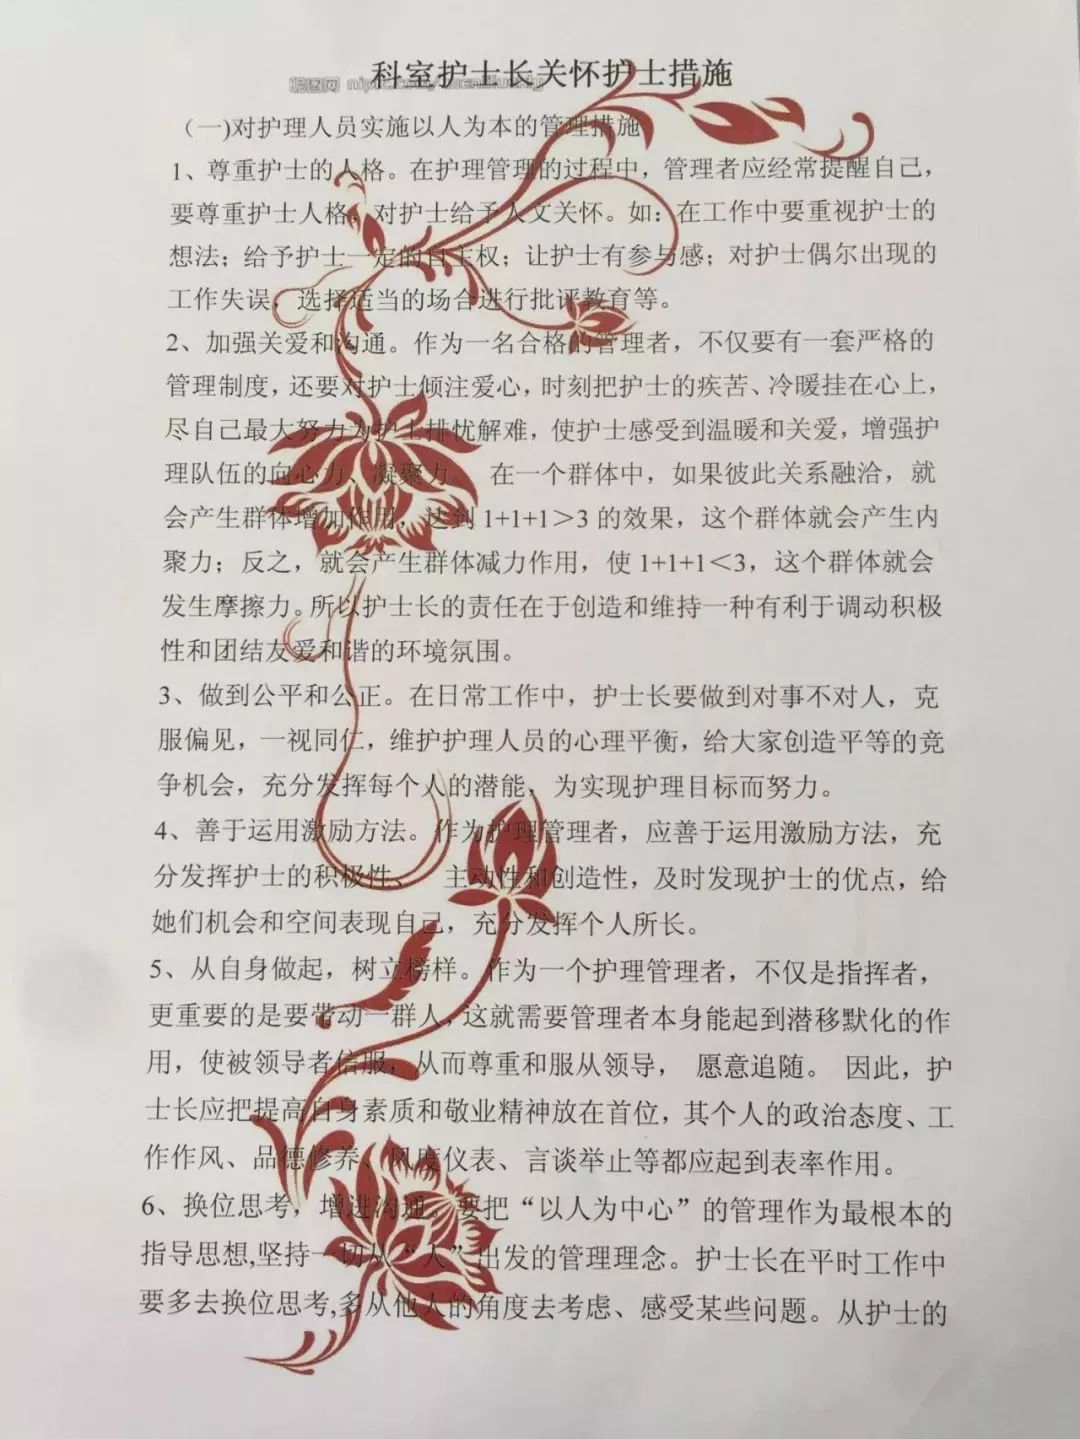 科室护士长关怀护士措施
昵图网
（一)对护理人员实施以人为本的管理措施
1、尊重护士的人格。在护理管理的过程中，管理者应经常提醒自己，
要尊重护士人格，对护士给予人文关怀。如：在工作中要重视护士的
想法；给予护士一定的自主权；让护士有参与感；对护士偶尔出现的
工作失误，选择适当的场合进行批评教育等。
2、加强关爱和沟通。作为一名合格的管理者，不仅要有一套严格的
管理制度，还要对护士倾注爱心，时刻把护士的疾苦、冷暖挂在心上，
尽自己最大努力为护士排忧解难，使护士感受到温暖和关爱，增强护
理队伍的向心力、凝聚力。 在一个群体中，如果彼此关系融洽，就
会产生群体增加作用，达到 1+1+1＞3 的效果，这个群体就会产生内
聚力；反之，就会产生群体减力作用，使 1+1+1＜3，这个群体就会
发生摩擦力。所以护士长的责任在于创造和维持一种有利于调动积极
性和团结友爱和谐的环境氛围。
3、做到公平和公正。在日常工作中，护士长要做到对事不对人，克
服偏见，一视同仁，维护护理人员的心理平衡，给大家创造平等的竞
争机会，充分发挥每个人的潜能，为实现护理目标而努力。
4、善于运用激励方法。作为护理管理者，应善于运用激励方法，充
分发挥护士的积极性、 主动性和创造性，及时发现护士的优点，给
她们机会和空间表现自己，充分发挥个人所长。
5、从自身做起，树立榜样。作为一个护理管理者，不仅是指挥者，
更重要的是要带动一群人，这就需要管理者本身能起到潜移默化的作
用，使被领导者信服，从而尊重和服从领导， 愿意追随。 因此，护
士长应把提高自身素质和敬业精神放在首位，其个人的政治态度、工
作作风、品德修养、风度仪表、言谈举止等都应起到表率作用。
6、换位思考，增进沟通。要把“以人为中心”的管理作为最根本的
指导思想,坚持一切从“人”出发的管理理念。护士长在平时工作中
要多去换位思考,多从他人的角度去考虑、感受某些问题。从护士的